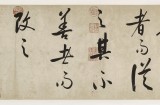 者而從
之其不
善者而
改之